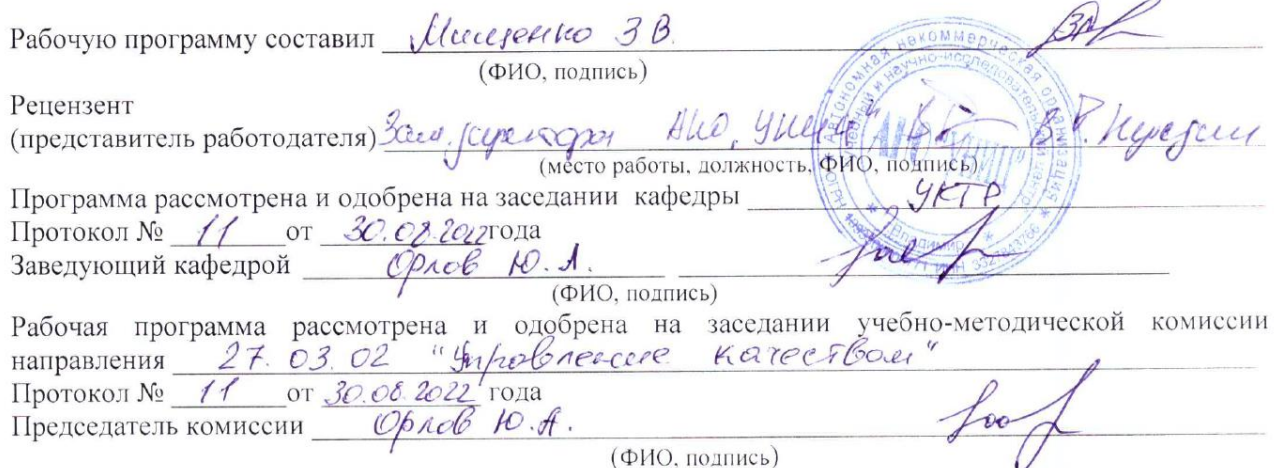 Рабочую программу составил Мищенко З В.
(ФИО, подпись)
Рецензент
(представитель работодателя) Зам. директора АНО
(место работы, должность, ФИО, подпись)
Программа рассмотрена и одобрена на заседании кафедры УКТР
Протокол № 11 от 30.08.2022 года
Заведующий кафедрой Орлов Ю. А.
(ФИО, подпись)
Рабочая программа рассмотрена и одобрена на заседании учебно-методической комиссии
направления 27.03.02 "Управление качеством"
Протокол № 11 от 30.08.2022 года
Председатель комиссии Орлов Ю. А.
(ФИО, подпись)
Автономная некоммерческая организация
Владимир